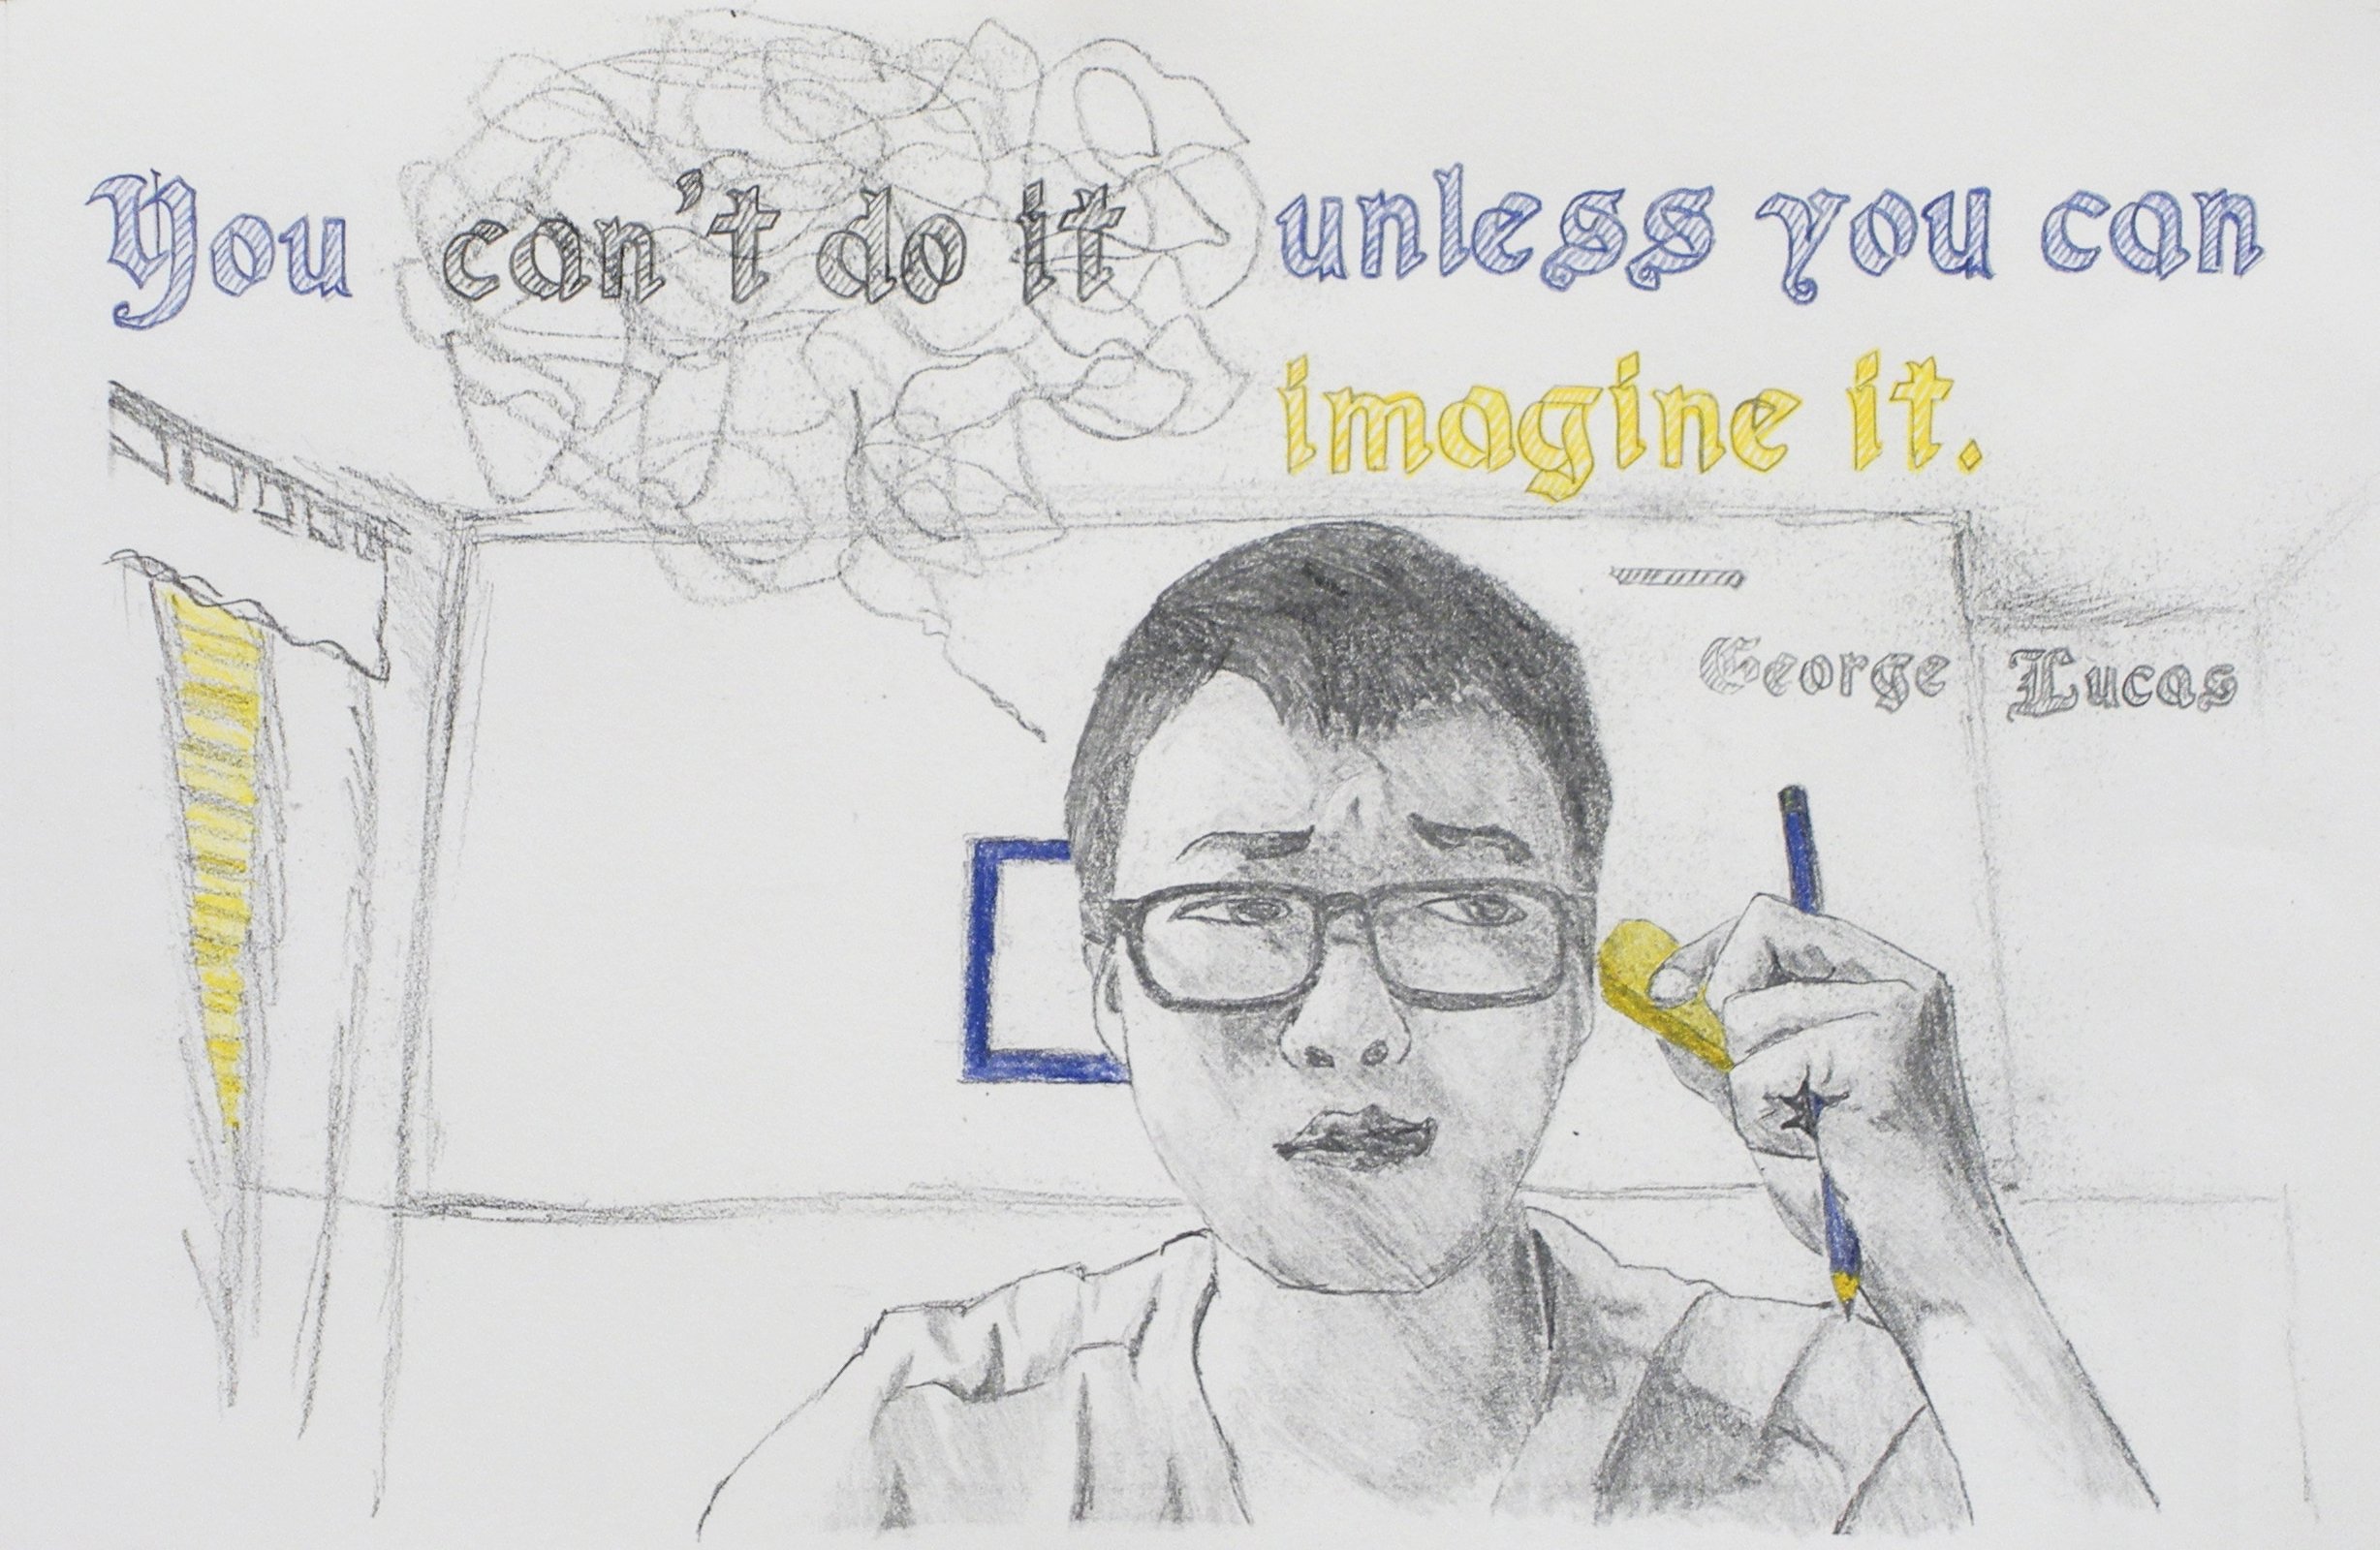 You can't do it unless you can
imagine it.
George Lucas